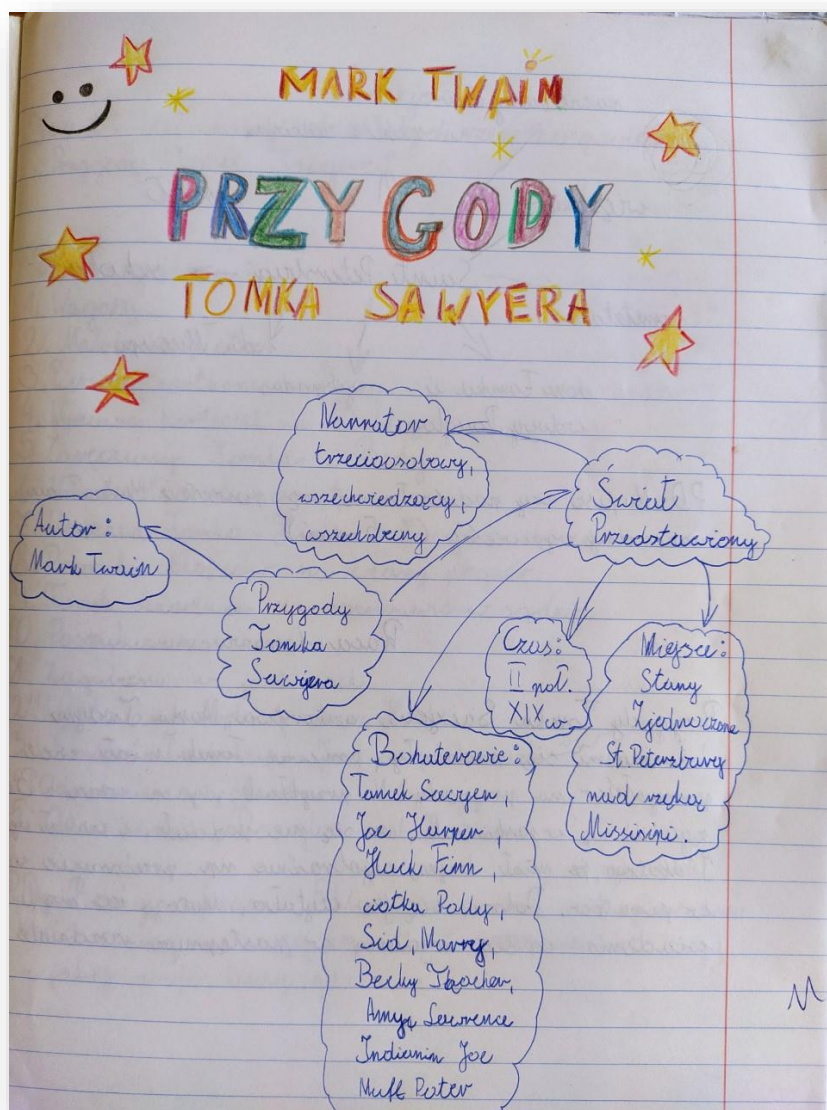 MARK TWAIN
PRZYGODY
TOMKA SAWYERA
Narrator
trzecioosobowy,
wszechwiedzący,
wszechobecny
Świat
Przedstawiony
Autor:
Mark Twain
Przygody
Tomka
Sawyera
Czas:
II poł.
XIX w.
Miejsce:
Stany
Zjednoczone
St. Petersburg
nad rzeką
Missisipi.
Bohaterowie:
Tomek Sawyer,
Joe Harper,
Huck Finn,
ciotka Polly,
Sid, Marry,
Becky
Lawrence
Indianin Joe
Muff Poter